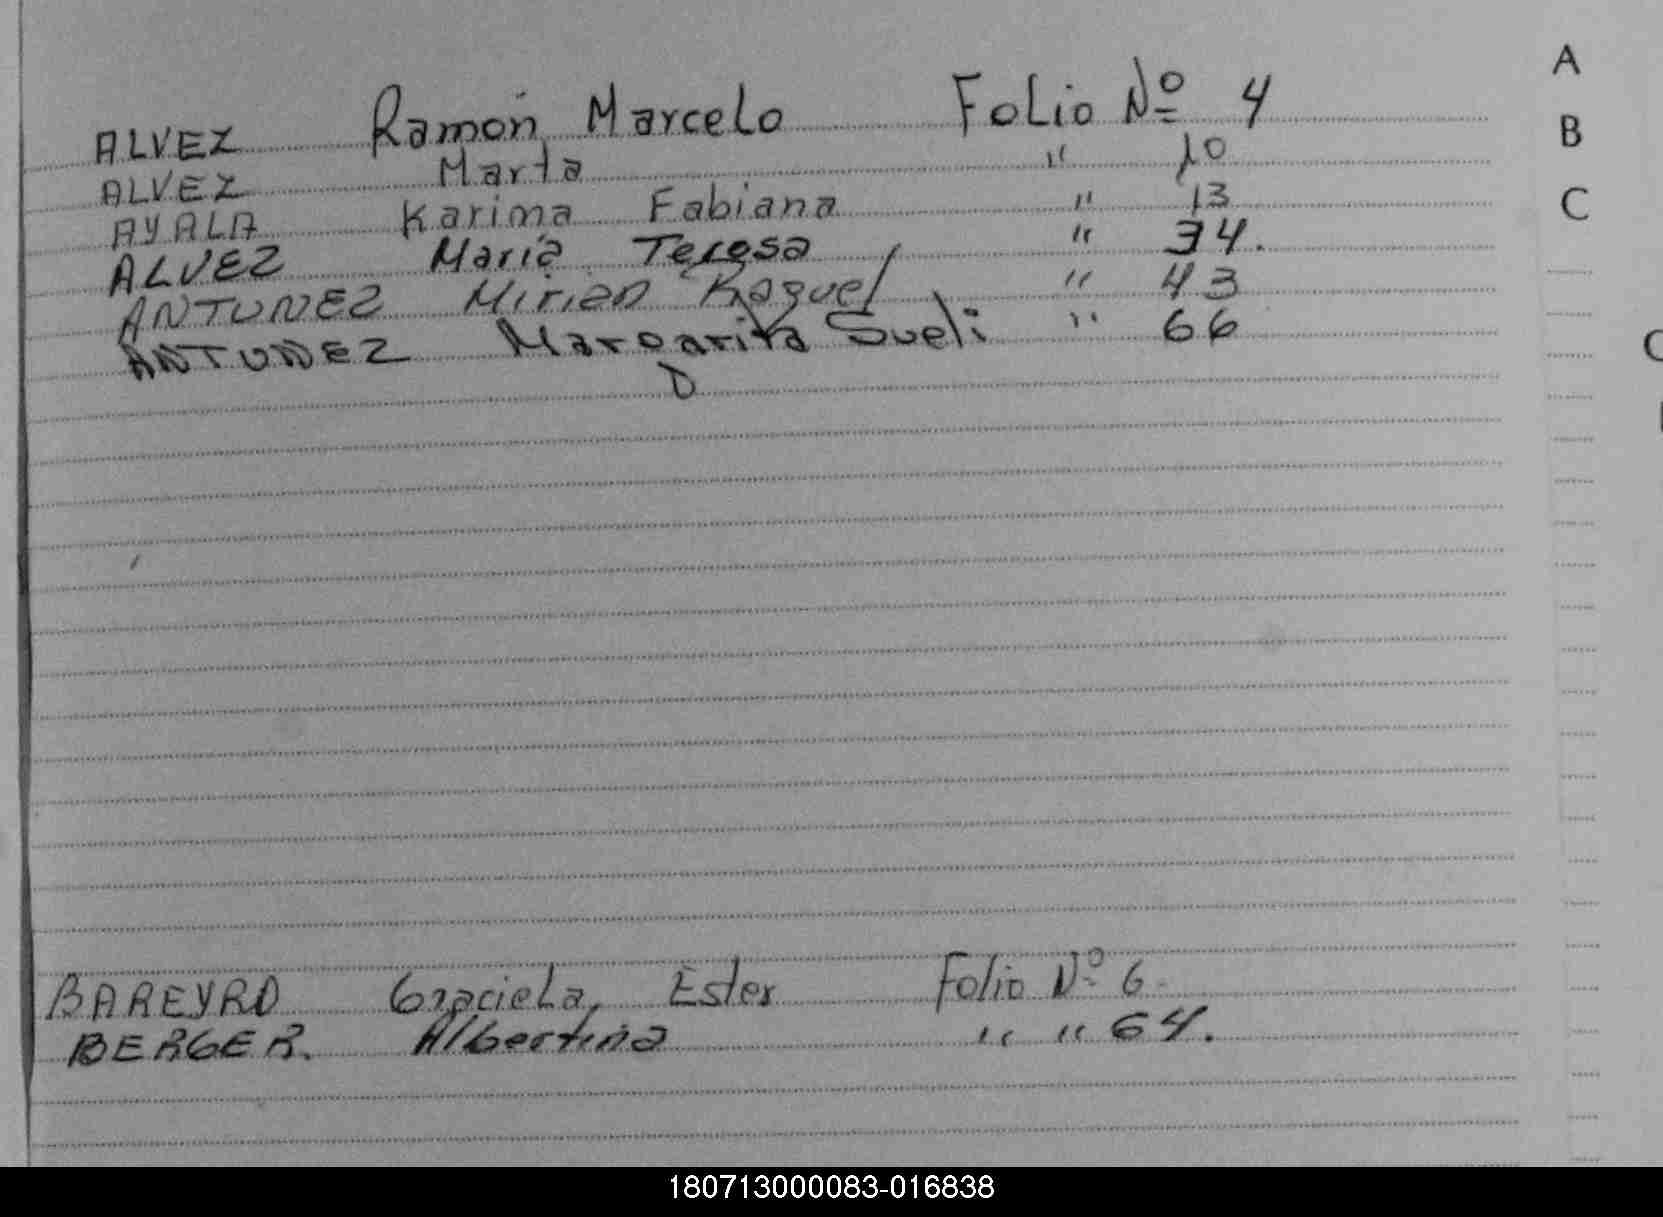 ALVEZ Ramón Marcelo Folio Nº 4
ALVEZ Marta " 10
AYALA Karima Fabiana " 13
ALVEZ María Teresa " 34.
ANTUNEZ Mirian Raquel " 43
ANTUNEZ Margarita Sueli " 66
BAREYRO Graciela, Ester Folio Nº 6.
BERGER. Albertina " " 64.
A
B
C
180713000083-016838